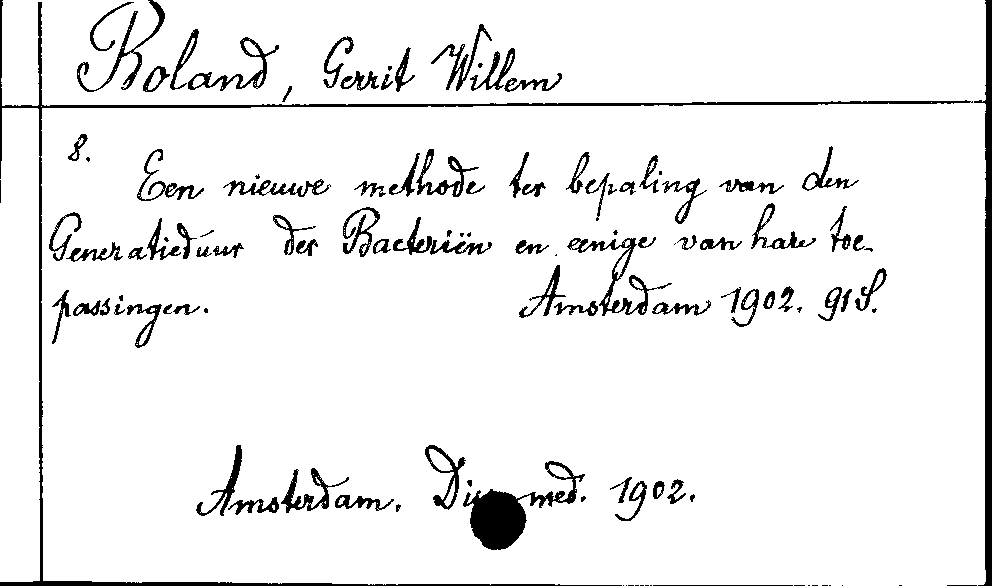 Roland, Gerrit Willem
8.
Een nieuwe methode ter bepaling van den
Generatieduur der Bacteriën en eenige van hare toe-
passingen. Amsterdam 1902. 91 S.
Amsterdam. Diss. med. 1902.